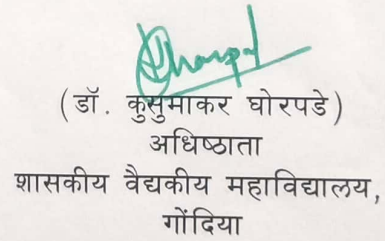 (डॉ. कुसुमाकर घोरपडे)
अधिष्ठाता
शासकीय वैद्यकीय महाविद्यालय,
गोंदिया